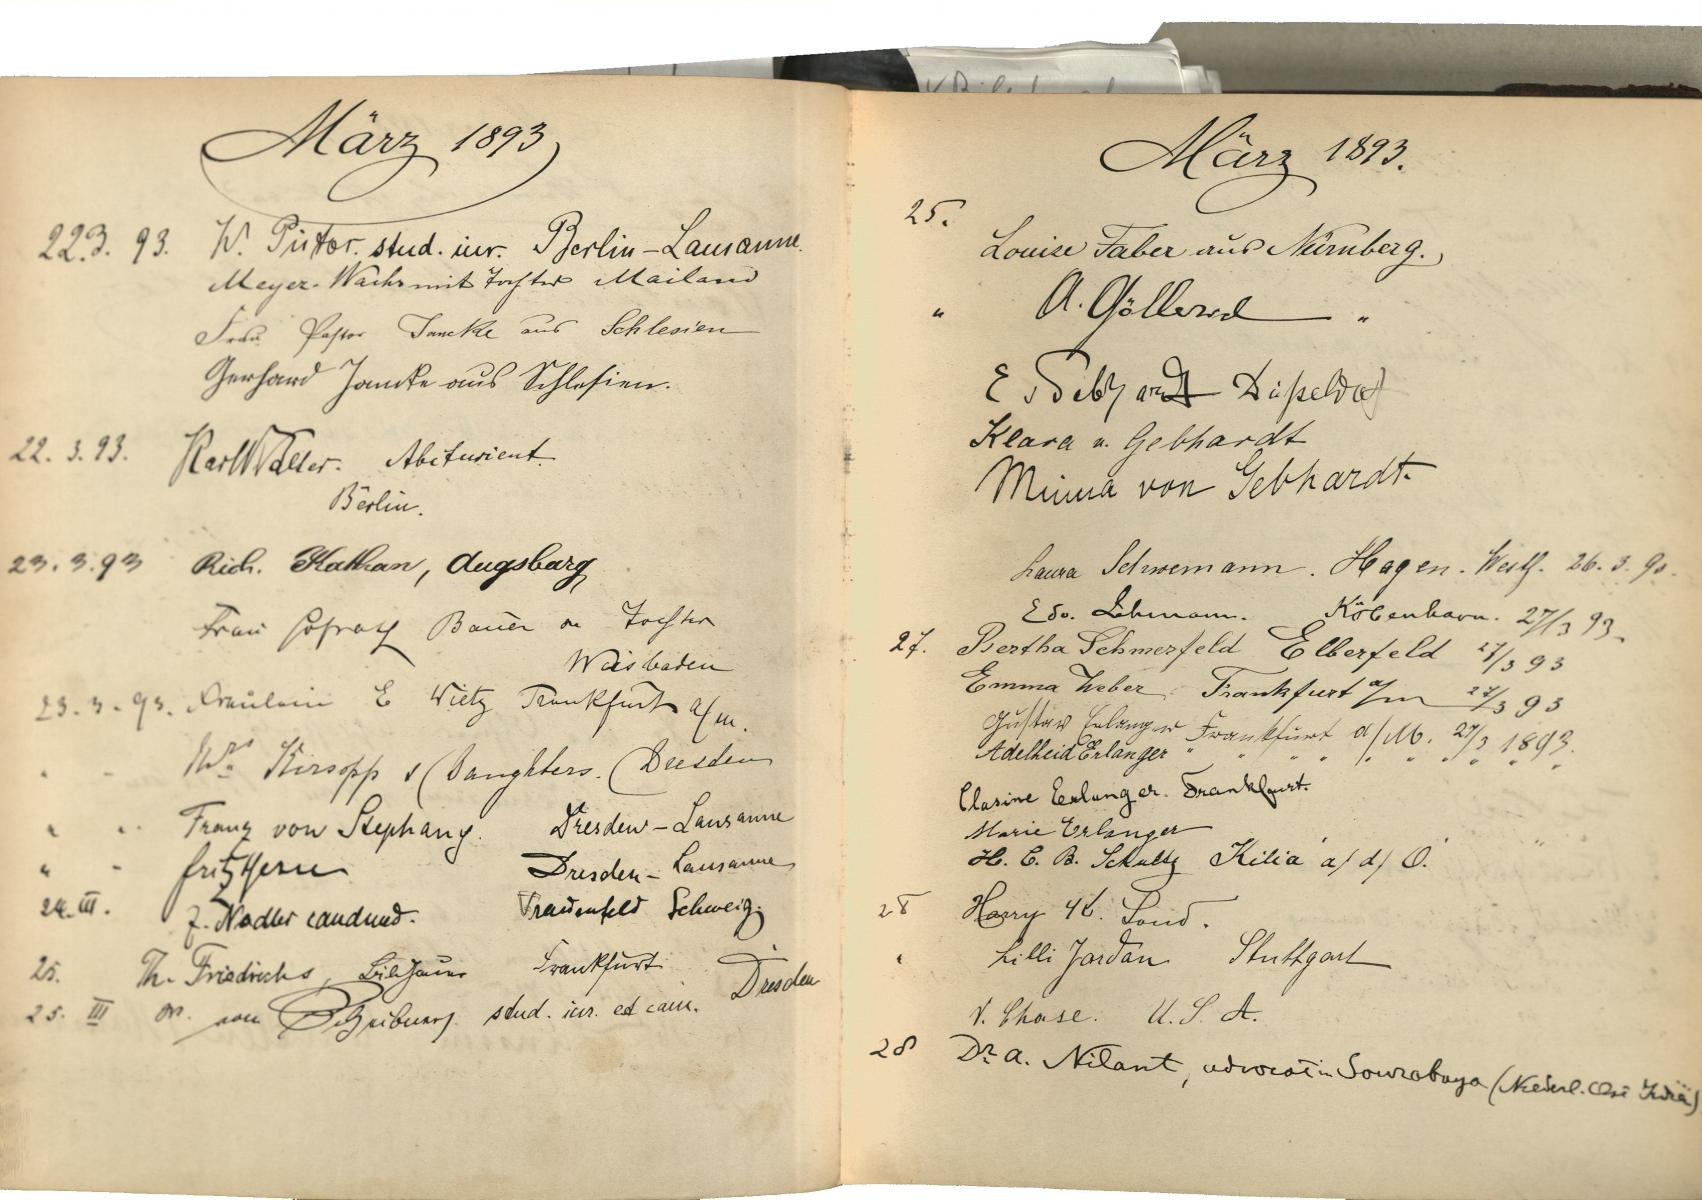 März 1893
22.3. 93. W. Pütor. stud. iur. Berlin - Lausanne.
Meyer-Wachs mit Tochter Mailand
Frau Pastor Jancke aus Schlesien
Gerhard Jancke aus Schlesien.
22. 3. 93. Karl Abiturient.
Berlin.
23. 3. 93 Rich. Kathan, Augsburg
Frau Hofrath Bauer Tochter
Wiesbaden
23. 3. 93. Fräulein E Wietz Frankfurt a/m.
" " Mrs Kirsopp & Daughters. Dresden
" " Franz von Stephany. Dresden - Lausanne
" " Fritz Hern Dresden - Lausanne
24. III. J. Nadler Frauenfeld Schweiz.
25. Th. Friedrichs, Bildhauer Frankfurt
25. III von stud. iur. et cam. Dresden
März 1893.
25.
Louise Faber aus Nürnberg.
" A. "
E v Gebhardt Düsseldorf
Klara v. Gebhardt
Minna von Gebhardt.
Laura Schwemann. Hagen. Westf. 26. 3. 93.
Edv. Lehmann. Köbenhavn. 27/3 93.
27. Bertha Schmerfeld Elberfeld 27/3 93
Emma Weber Frankfurt a/m 27/3 93
Gustav Erlanger Frankfurt a/M. 27/3 1893.
Adelheid Erlanger " " " " " " " "
Clarine Erlanger. Frankfurt.
Marie Erlanger "
H. C. B. Schultz Kilia a/d/O.
28 Harry
" Lilli Jordan Stuttgart
V. Chase. U. S. A.
28 Dr. A. Nilant, advocat in Sourabaya (Niederl. Ost Indiën)